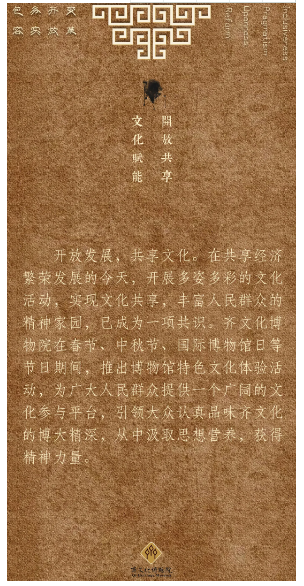 变革
开放
务实
包容
開放共享
文化赋能
开放发展，共享文化。在共享经济
繁荣发展的今天，开展多姿多彩的文化
活动，实现文化共享，丰富人民群众的
精神家园，已成为一项共识。齐文化博
物院在春节、中秋节、国际博物馆日等
节日期间，推出博物馆特色文化体验活
动，为广大人民群众提供一个广阔的文
化参与平台，引领大众认真品味齐文化
的博大精深，从中汲取思想营养，获得
精神力量。